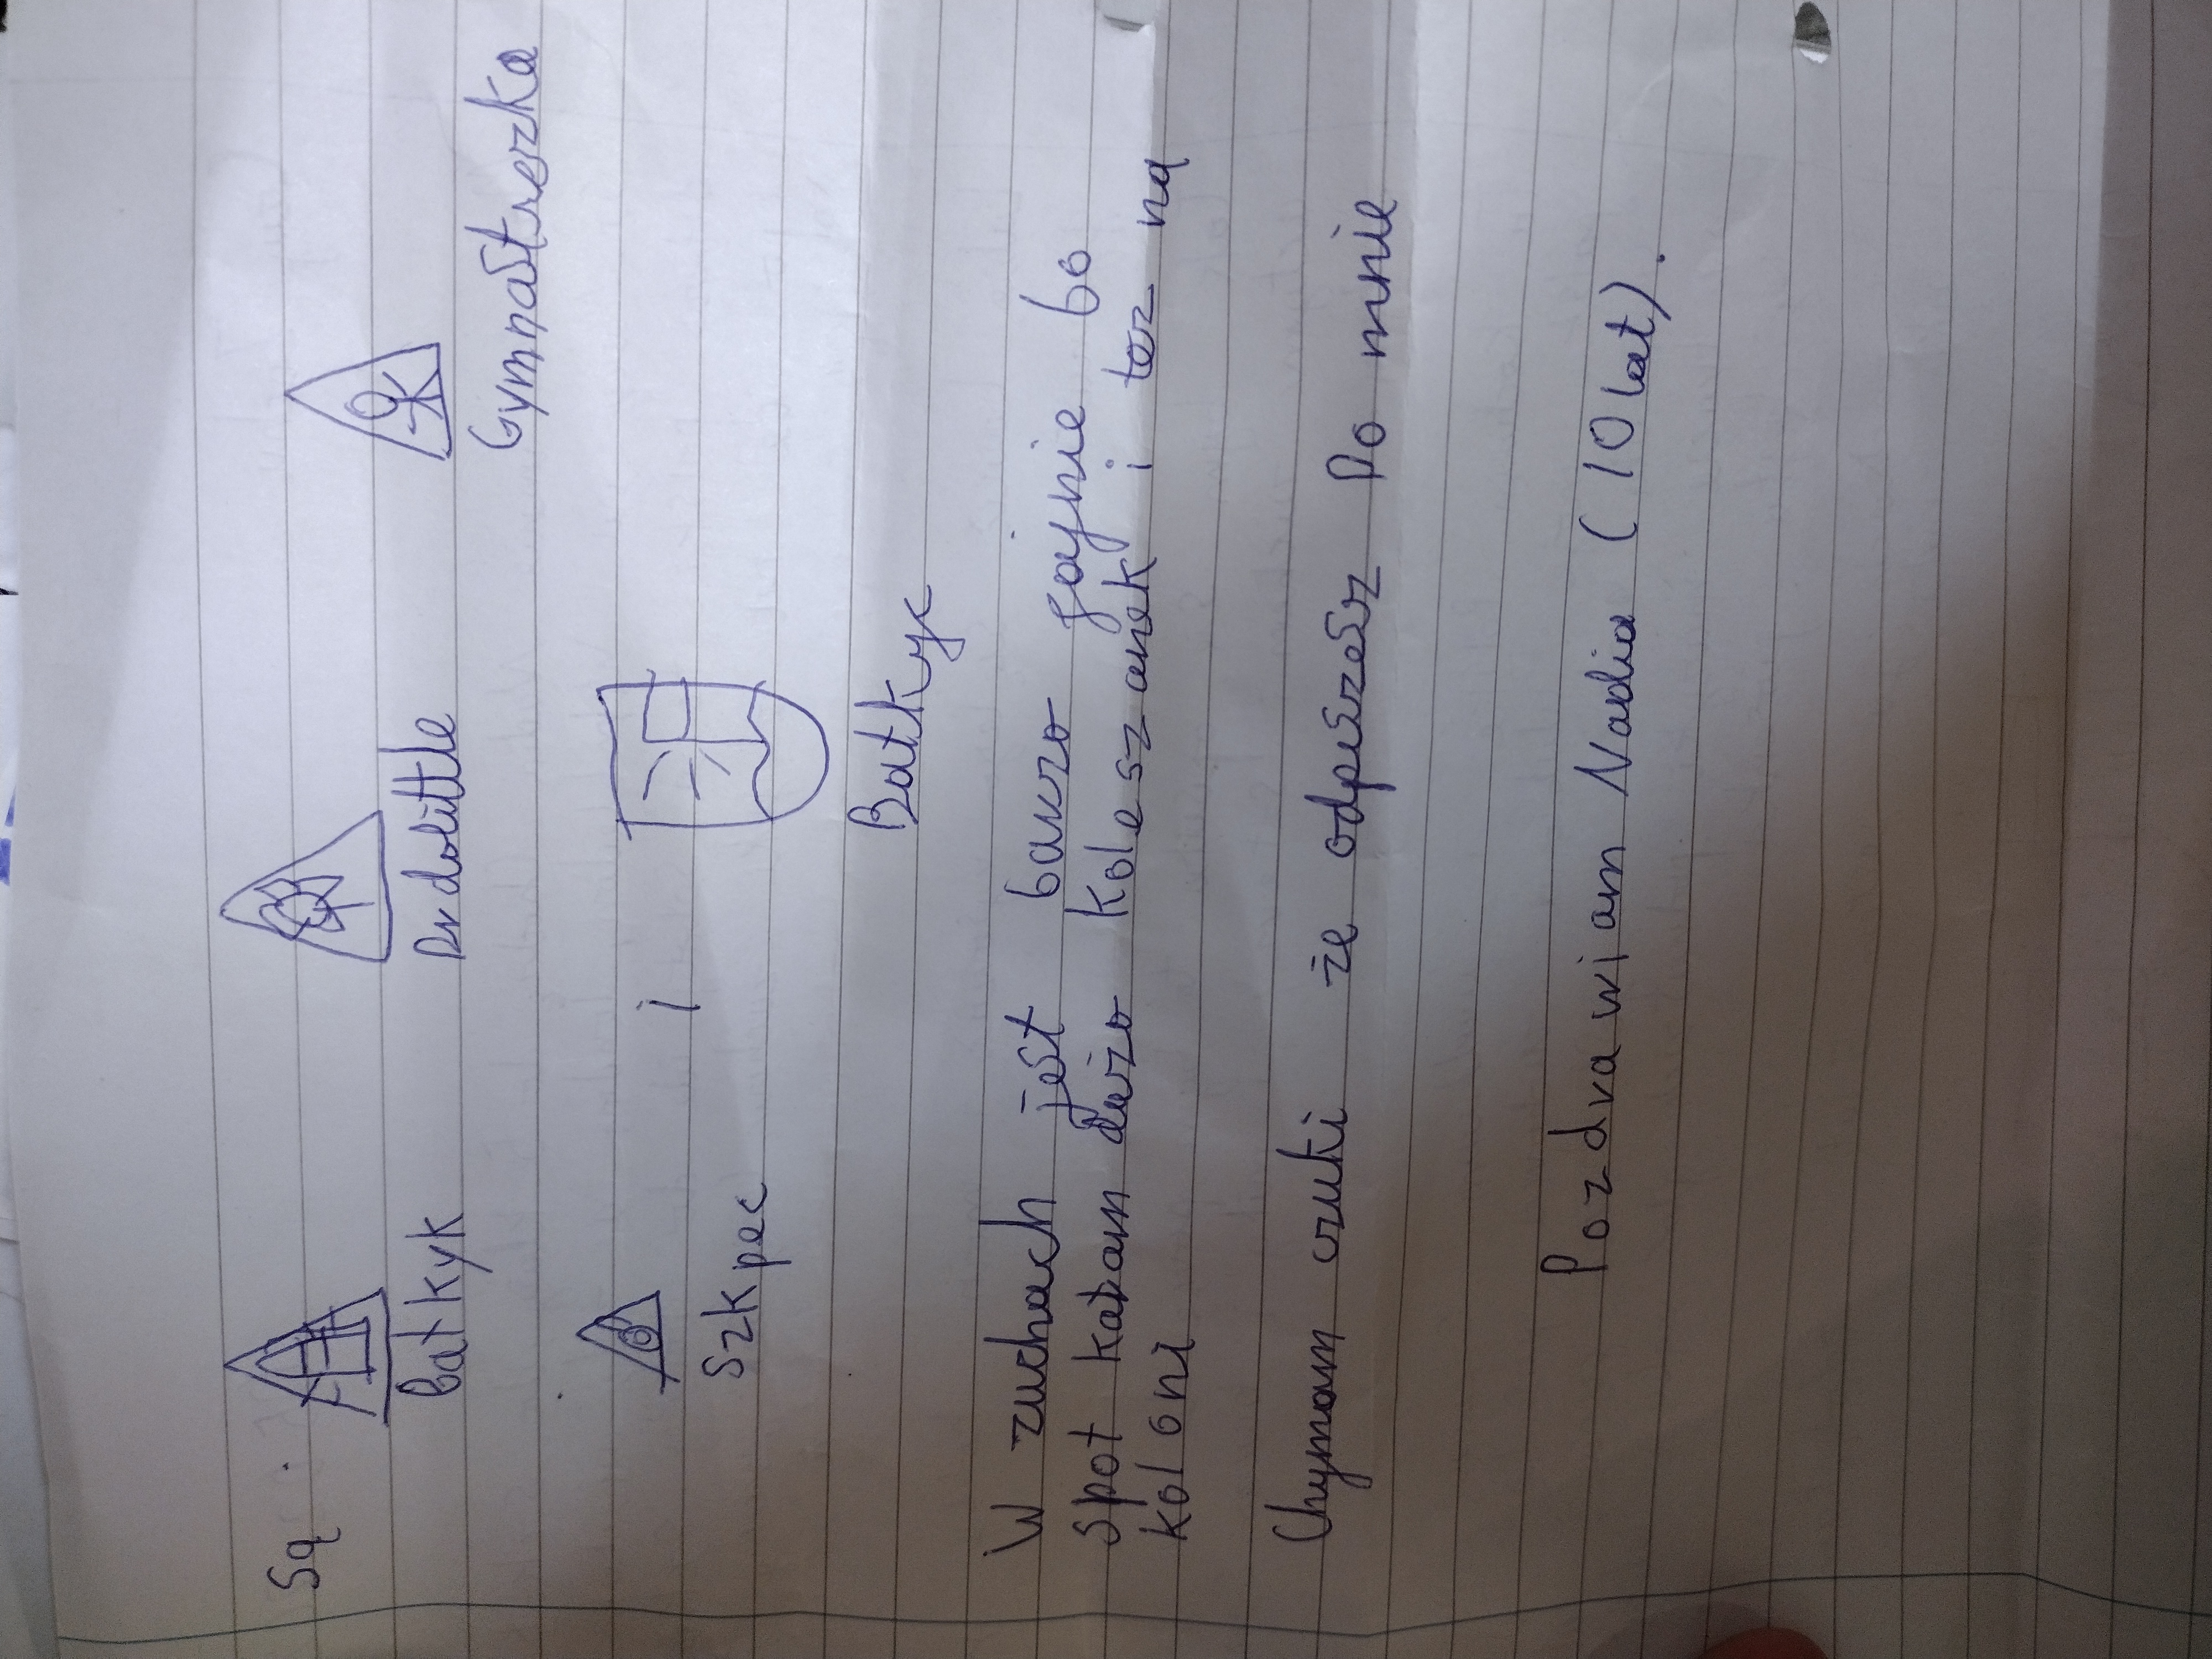 Są
Bałtkyk Dr dolittle Gymnastreszka
i
Szkpec Bałtkyc
W zuchach jest bawzo fajnie bo
spotkałam dużo koleszanek i tez na
koloni
Chymam czuki że odpiszesz Po mnie
Pozdrawiam Nadia (10 lat).